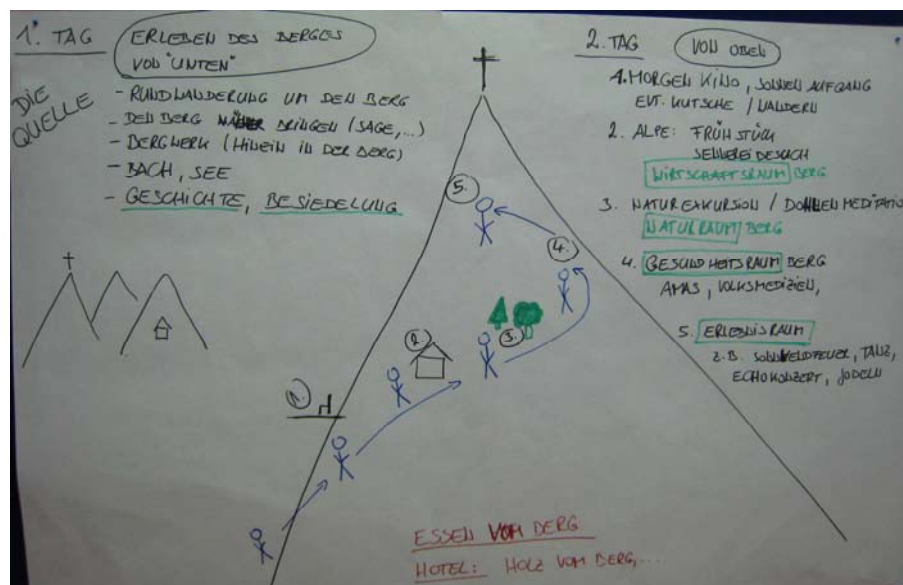 1. TAG
ERLEBEN DES BERGES
VON "UNTEN"
DIE
QUELLE
- RUNDWANDERUNG UM DEN BERG
- DEN BERG NÄHER BRINGEN (SAGE,...)
- BERGWERK (HINEIN IN DER BERG)
- BACH, SEE
- GESCHICHTE, BESIEDELUNG
2. TAG
VON OBEN
1. MORGEN KINO, SONNENAUFGANG
EVT. KUTSCHE / WANDERN
2. ALPE: FRÜHSTÜCK
SENNEREIBESUCH
WIRTSCHAFTSRAUM BERG
3. NATUREXKURSION /
NATURRAUM BERG
4. GESUNDHEITSRAUM BERG
VOLKSMEDIZIEN,
5. ERLEBNISRAUM
Z.B. SONNWENDFEUER, TANZ,
ECHOKONZERT, JODELN
5.
4.
3.
2.
1.
ESSEN VOM BERG
HOTEL: HOLZ VOM BERG,...